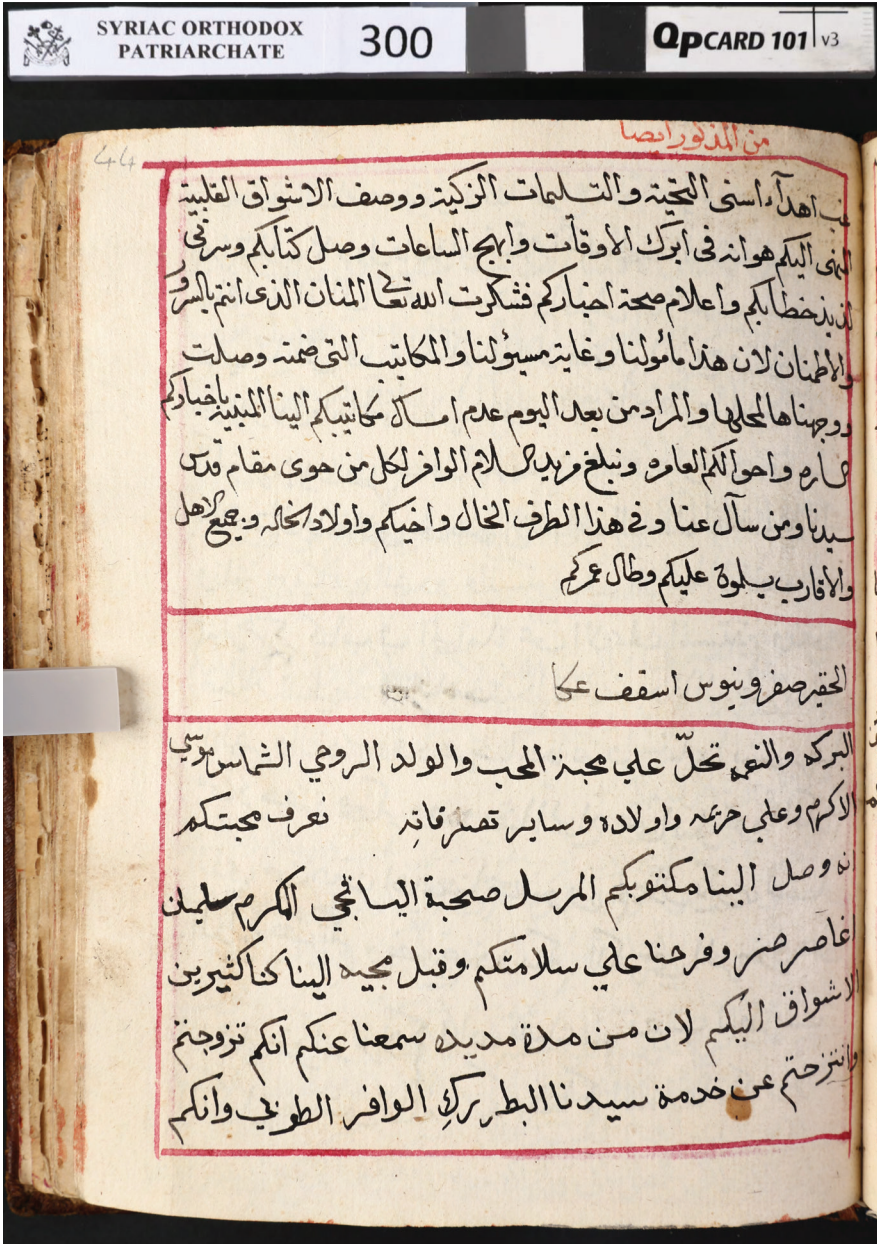 SYRIAC ORTHODOX
PATRIARCHATE
300
QpCARD 101 v3
44
من المذكور ايضا
غب اهدآء اسنى التحية والتسليمات الزكية ووصف الاشواق القلبية
المنهى اليكم هو انه فى ابرك الاوقات وابهج الساعات وصل كتابكم وسرنى
لذيذ خطابكم واعلام صحة اخباركم فشكرت الله تعالى المنان الذى انتم بالسرور
والاطمنان لان هذا مامولنا وغاية مسؤلنا والمكاتيب التى ضمنه وصلت
ووجهناها لمحلها والمراد من بعد اليوم عدم امساك مكاتيبكم الينا المنبية باخباركم
الساره واحوالكم العامره ونبلغ مزيد السلام الوافر لكل من حوى مقام قدس
سيدنا ومن سآل عنا وفى هذا الطرف الخال واخيكم واولاد الخاله وجميع الاهل
والاقارب يسلموا عليكم وطال عمركم
الحقير صفرونيوس اسقف عكا
البركه والنعمه تحلّ علي محبة المحب والولد الروحي الشماس موسي
الاكرم وعلي حريمه واولاده وساير تصرفاته نعرف محبتكم
انه وصل الينا مكتوبكم المرسل صحبة اليساقجي المكرم سليمان
اغا وفرحنا علي سلامتكم وقبل مجيه الينا كنا كثيرين
الاشواق اليكم لان من مدة مديده سمعنا عنكم انكم تزوجتم
وانتزحتم عن خدمة سيدنا البطريرك الوافر الطوبي وانكم